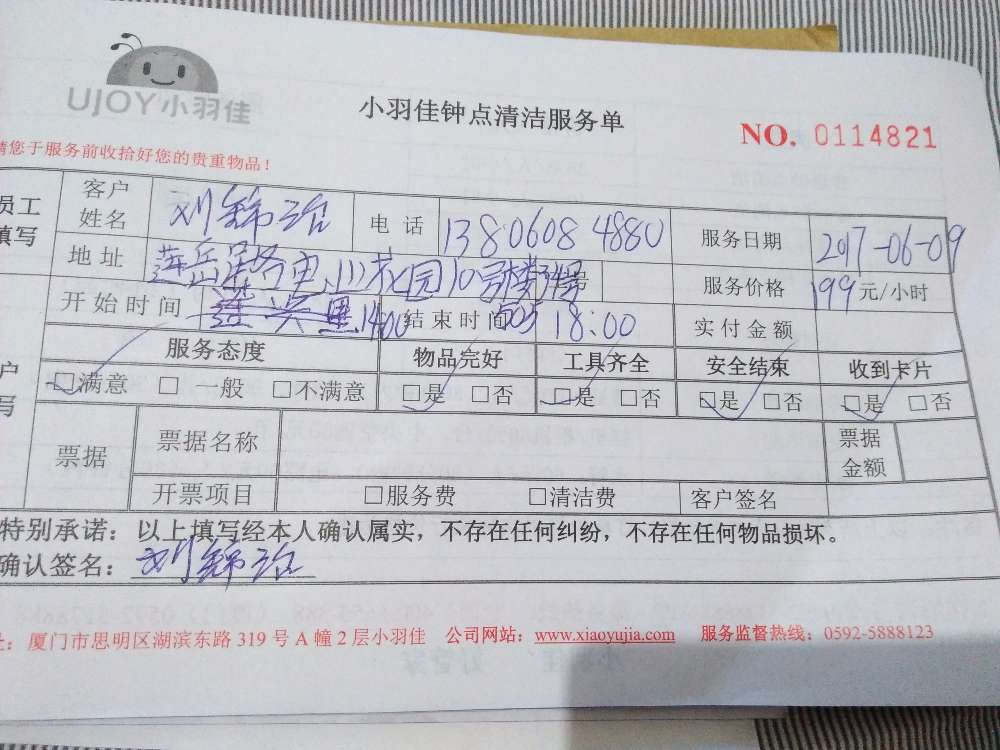 UJOY小羽佳
小羽佳钟点清洁服务单
NO. 0114821
请您于服务前收拾好您的贵重物品！
员工填写
客户姓名 刘锦治 电话 13806084880 服务日期 2017-06-09
地址 莲岳路 花园10号楼 服务价格 199元/小时
开始时间 1400 结束时间 18:00 实付金额
服务态度 物品完好 工具齐全 安全结束 收到卡片
☑满意 □一般 □不满意 ☑是 □否 ☑是 □否 ☑是 □否 ☑是 □否
户
写
票据 票据名称 票据金额
开票项目 □服务费 □清洁费 客户签名
特别承诺：以上填写经本人确认属实，不存在任何纠纷，不存在任何物品损坏。
确认签名：刘锦治
址：厦门市思明区湖滨东路 319 号 A 幢 2 层小羽佳 公司网站：www.xiaoyujia.com 服务监督热线：0592-5888123